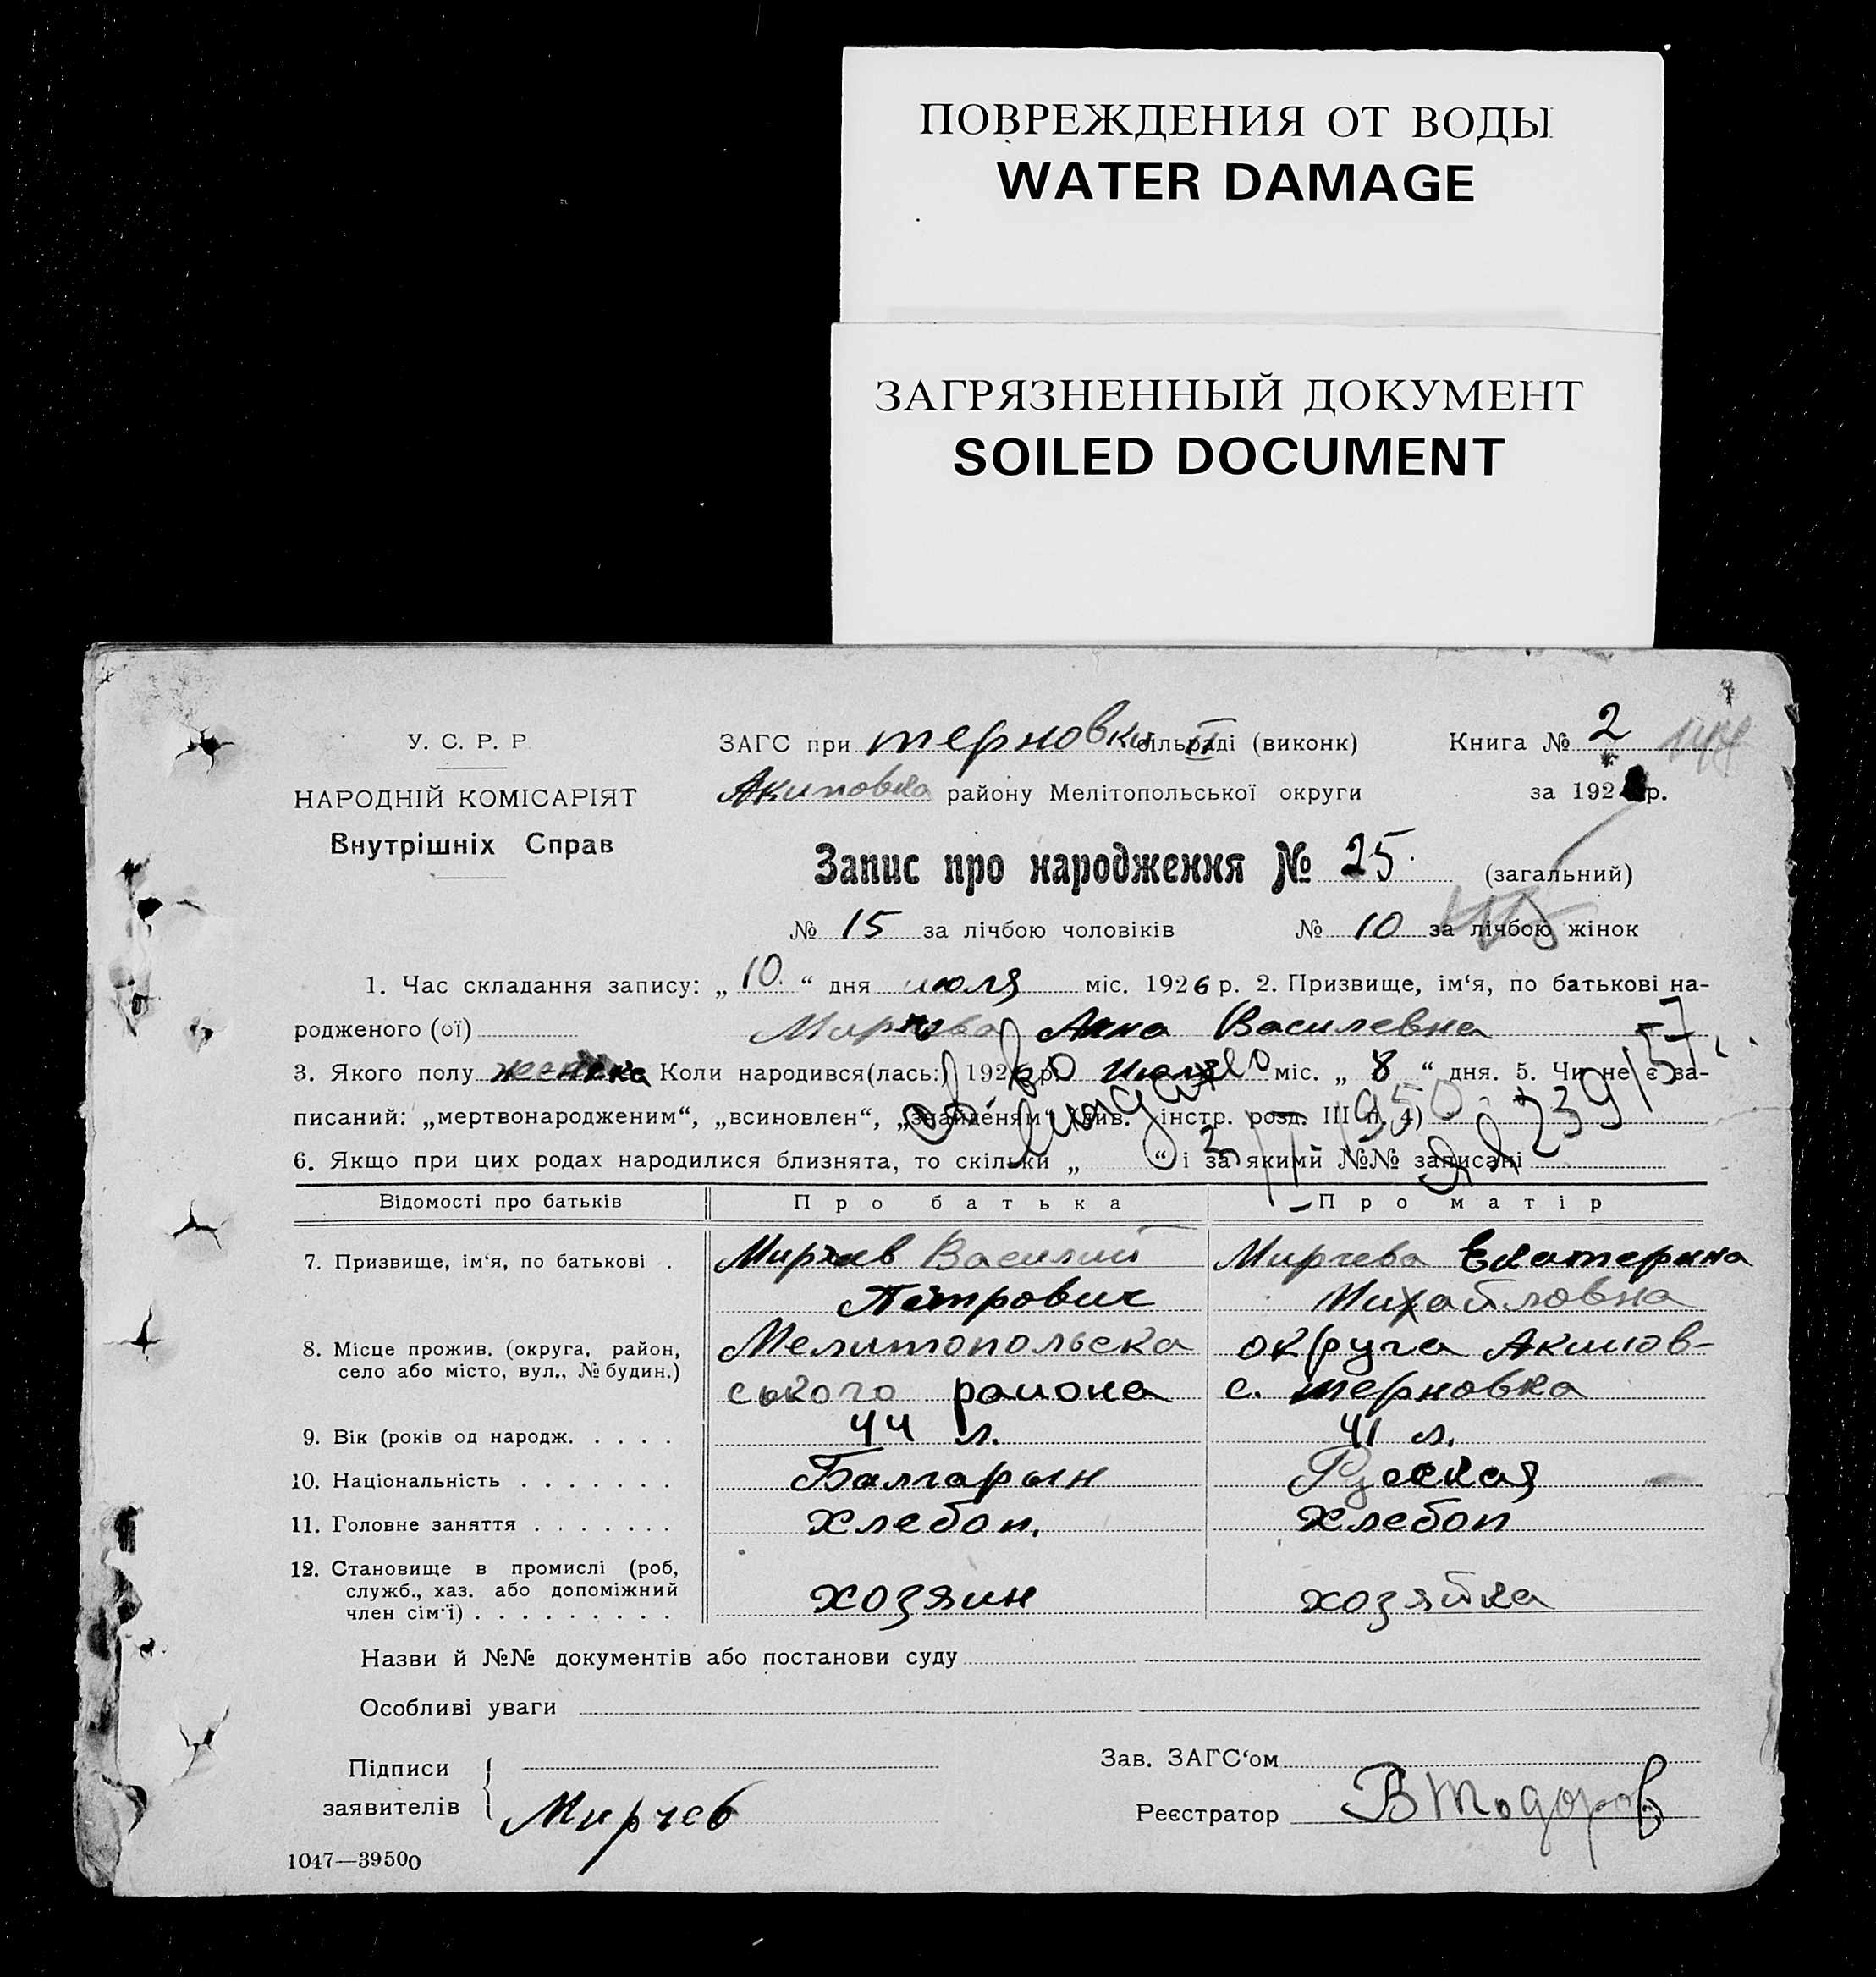 ПОВРЕЖДЕНИЯ ОТ ВОДЫ
WATER DAMAGE
ЗАГРЯЗНЕННЫЙ ДОКУМЕНТ
SOILED DOCUMENT
У. С. Р. Р
НАРОДНІЙ КОМІСАРІЯТ
Внутрішніх Справ
ЗАГС при терновки II сільраді (виконк) Книга № 2
Акимовка району Мелітопольської округи за 192 р.
Запис про народження № 25. (загальний)
№ 15 за лічбою чоловіків № 10 за лічбою жінок
1. Час складання запису: „ 10. “ дня июля міс. 1926 р. 2. Призвище, ім‘я, по батькові на-
родженого (ої) Мирчева Анна Василевна
3. Якого полу женска Коли народився(лась:) 192 р. июля міс. „ 8 “ дня. 5. Чи не є за-
писаний: „мертвонародженим“, „всиновлен“, „знайденям“ (див. інстр. розд. III п. 4)
6. Якщо при цих родах народилися близнята, то скільки „ “ і за якими №№ записані
Відомості про батьків Про батька Про матір
7. Призвище, ім‘я, по батькові . Мирчев Василий Мирчева Екатерина
Петрович Михайловна
8. Місце прожив. (округа, район, Мелитопольска округа Акимов-
село або місто, вул., № будин.) ського района с. терновка
9. Вік (років од народж. . . . . 44 л. 41 л.
10. Національність . . . . . . . Балгарын Руская
11. Головне заняття . . . . . . . Хлебоп. Хлебоп
12. Становище в промислі (роб,
служб., хаз. або допоміжний хозяин хозяйка
член сім‘ї) . . . . . . . . .
Назви й №№ документів або постанови суду
Особливі уваги
Підписи Зав. ЗАГС‘ом
заявителів Мирчев Реєстратор ВТодоров
1047—39500